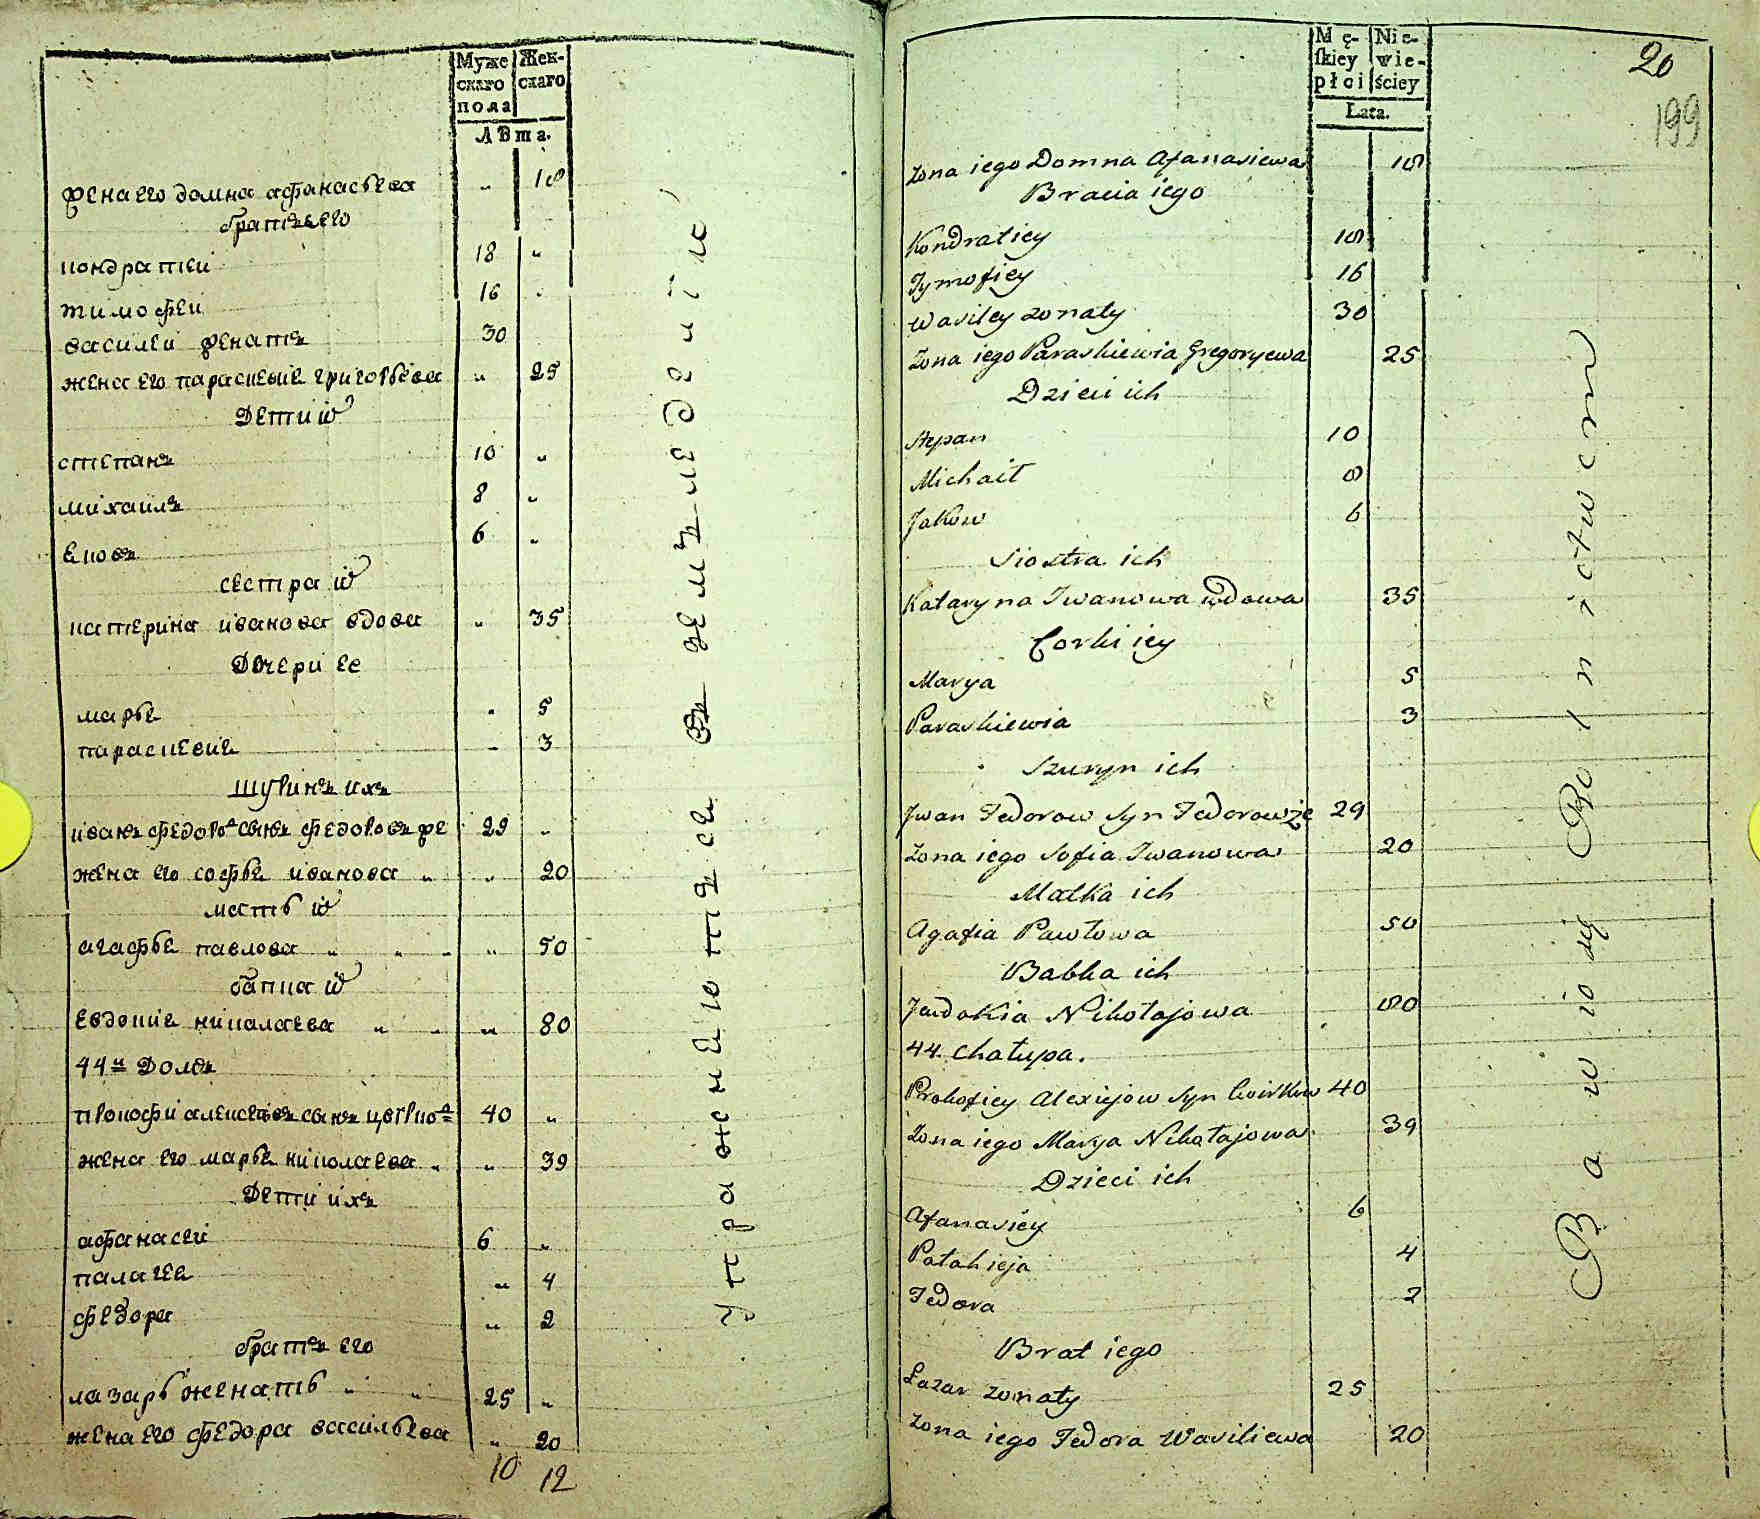 Муже Жен-
скаго скаго
пола
Лѣта.
жена его домна афанасьева " 18
братья его
кондратей 18 "
тимофей 16 "
василей женатъ 30
жена его параскевия григорьева " 25
Дети их
степанъ 10 "
михаилъ 8 "
яковъ 6 "
сестра их
катерина иванова вдова " 35
Дочери ее
марья " 5
параскевия " 3
шуринъ ихъ
иванъ федоров сынъ федоровъ же 29 "
жена его софья иванова " " 20
мать их
агафья павлова " " " " 50
бапка их
евдокия николаева " " " 80
44й Домъ
прокофий алексеевъ сынъ 40 "
жена его марья николаева " " 39
Дети ихъ
афанасей 6 "
палагея " 4
федора " 2
братъ его
лазарь женатъ " " 25 "
жена его федора васильева " 20
10 12
упражняются въ земледелии
Mę- Nie-
skiey wie-
płci ściey
Lata.
20
199
żona iego Domna Afanasiewa 18
Bracia iego
Kondratiey 18
Tymofiey 16
Wasiley żonaty 30
żona iego Paraskiewia Gregoryewa 25
Dzieci ich
Stepan 10
Michaił 8
Jakow 6
Siostra ich
Kataryna Iwanowa wdowa 35
Corki iey
Marya 5
Paraskiewia 3
Szuryn ich
Iwan Fedorow Syn Fedorow że 29
żona iego Sofia Iwanowa 20
Matka ich
Agafia Pawłowa 50
Babka ich
Jewdokia Nikołajowa 80
44 chałupa.
Prokofiey Alexiejow Syn 40
żona iego Marya Nikołajowa 39
Dzieci ich
Afanasiey 6
Patahieja 4
Fedora 2
Brat iego
Łazar żonaty 25
żona iego Fedora Wasiliewa 20
Bawio się Rolnictwem